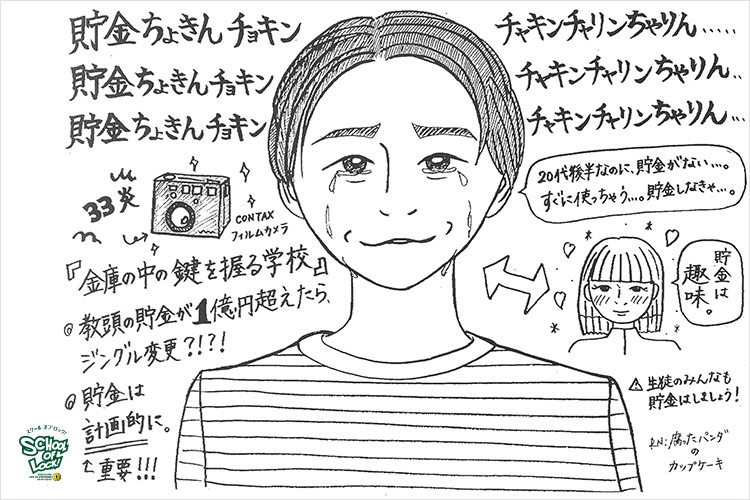 貯金ちょきんチョキン
貯金ちょきんチョキン
貯金ちょきんチョキン
チャキンチャリンちゃりん.....
チャキンチャリンちゃりん..
チャキンチャリンちゃりん...
33炎
CONTAX
フィルムカメラ
『金庫の中の鍵を握る学校』
◎教頭の貯金が1億円超えたら、
ジングル変更?!?!
◎貯金は
計画的に。
↑重要!!!
20代後半なのに、貯金がない...。
すぐに使っちゃう...。貯金しなきゃ...。
貯金は
趣味。
⚠生徒のみんなも
貯金はしましょう!
RN:腐ったパンダ
の
カップケーキ
スクール オブ ロック!
SCHOOL
OF
LOCK!